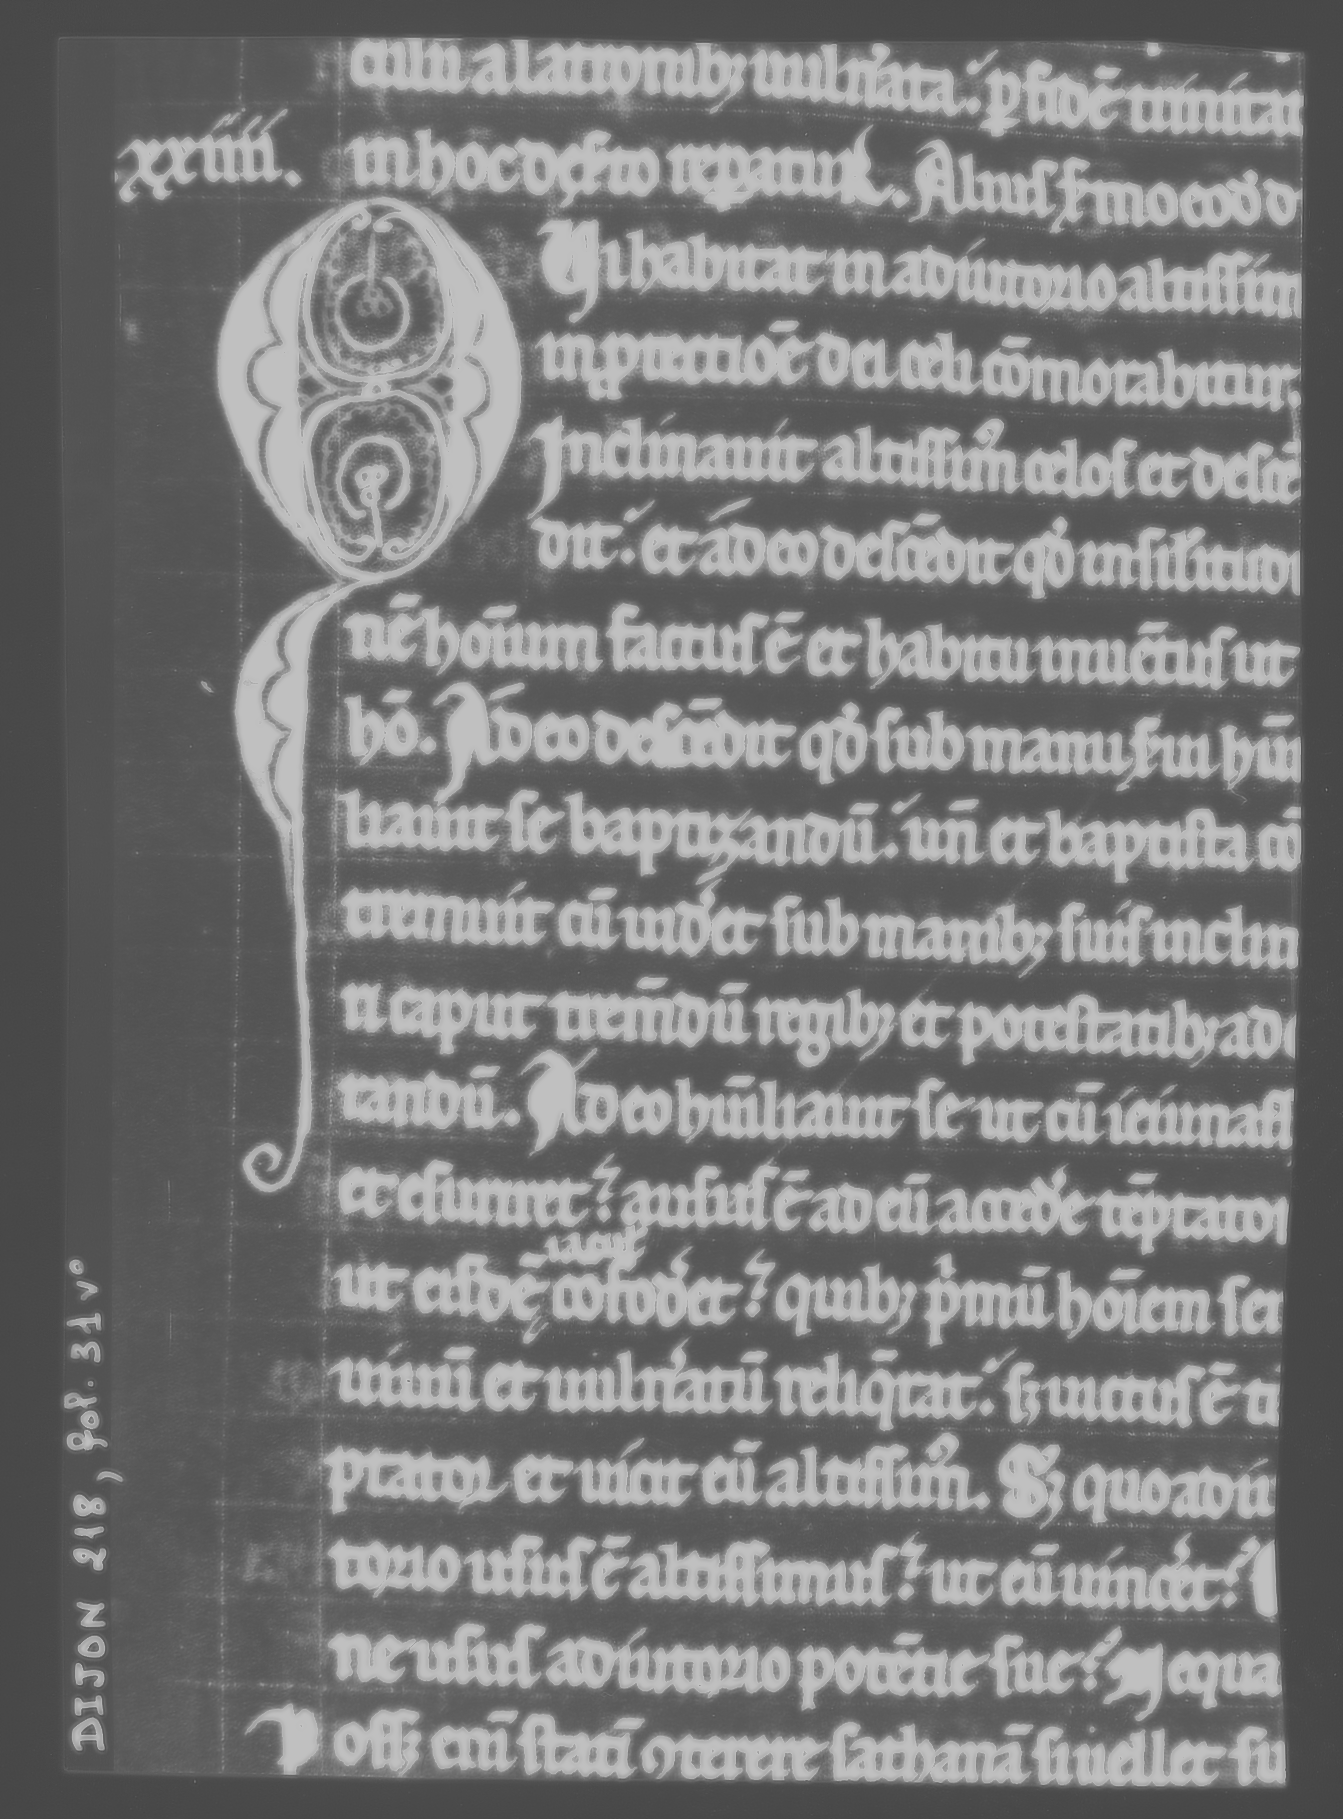 culu a latronib; uuln̾ata. ꝑ fidē trinitat
xxiiii. in hoc deſ̾to reꝑatuR. Aliuſ ẜmo eod̾ d
Qui habitat in adiutorio altiſſim
in ꝓtectiōe dei celi cōmorabitur.
Inclinauit altiſſim᷒ celoſ et deſcē
dit. et ádeo deſcēdit qd̾ in ſil̾itudi
nē hoīum factuſ ē et habitu inuētuſ ut
hō. Adeo deſcēdit qd̾ ſub manu ẜui hūi
liauit ſe baptizandū. un̄ et baptiſta cō
tremuit cū uid̾et ſub manib; ſuiſ inclin
ri caput trem̄dū regib; et poteſtatib; ado
randū. Adeo hūiliauit ſe ut cū ieiunaſſ
et eſuriret? auſuſ ē ad eū acced̾e tēptator
ut eiſdē iaculiſ cōfod̾et? quib; p̾mū hōiem ſem
uiuū et uuln̾atū reliq̄rat. ſꝫ uictuſ ē tē
ptator et uicit eū altiſſim᷒. Sꝫ quo adiu
torio uſuſ ē altiſſimuſ? ut eū uinc̾et?
ne uſuſ adiutorio potētie ſue? Nequa
Poſſꝫ eni̅ ſtatī ꝯterere ſathanā ſi uellet ſu
DIJON 218, fol. 31 v°